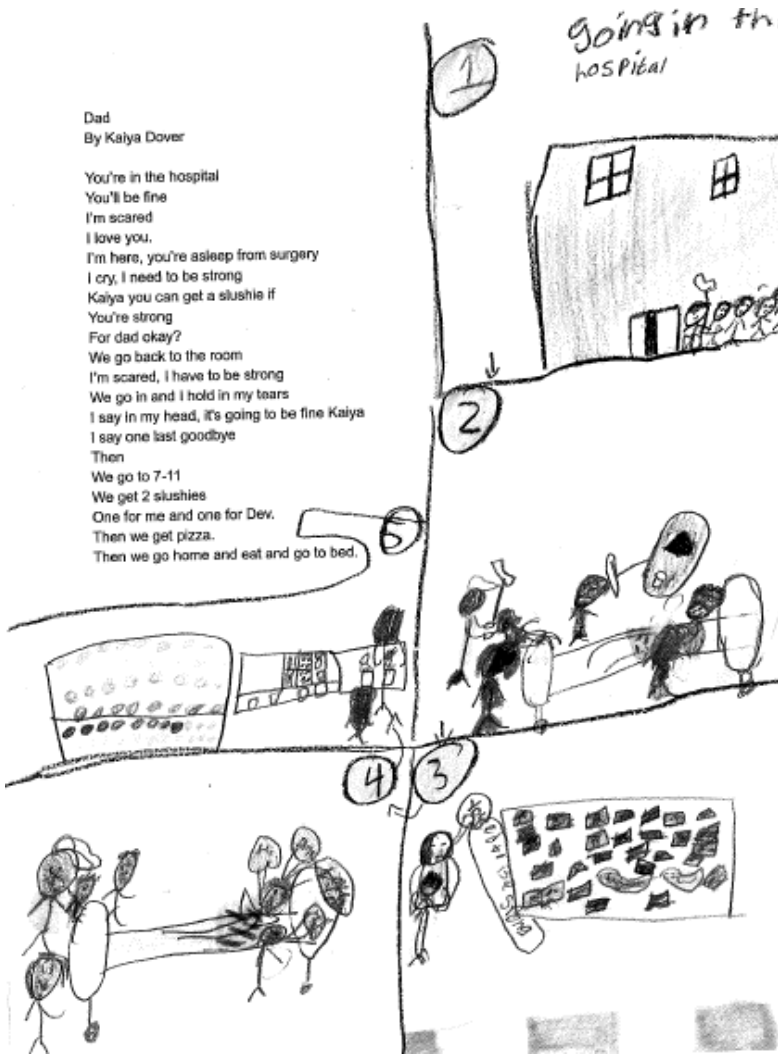 Dad
By Kaiya Dover
You're in the hospital
You'll be fine
I'm scared
I love you.
I'm here, you're asleep from surgery
I cry, I need to be strong
Kaiya you can get a slushie if
You're strong
For dad okay?
We go back to the room
I'm scared, I have to be strong
We go in and I hold in my tears
I say in my head, it's going to be fine Kaiya
I say one last goodbye
Then
We go to 7-11
We get 2 slushies
One for me and one for Dev.
Then we get pizza.
Then we go home and eat and go to bed.
1
going in th
hospital
2
3
4
5